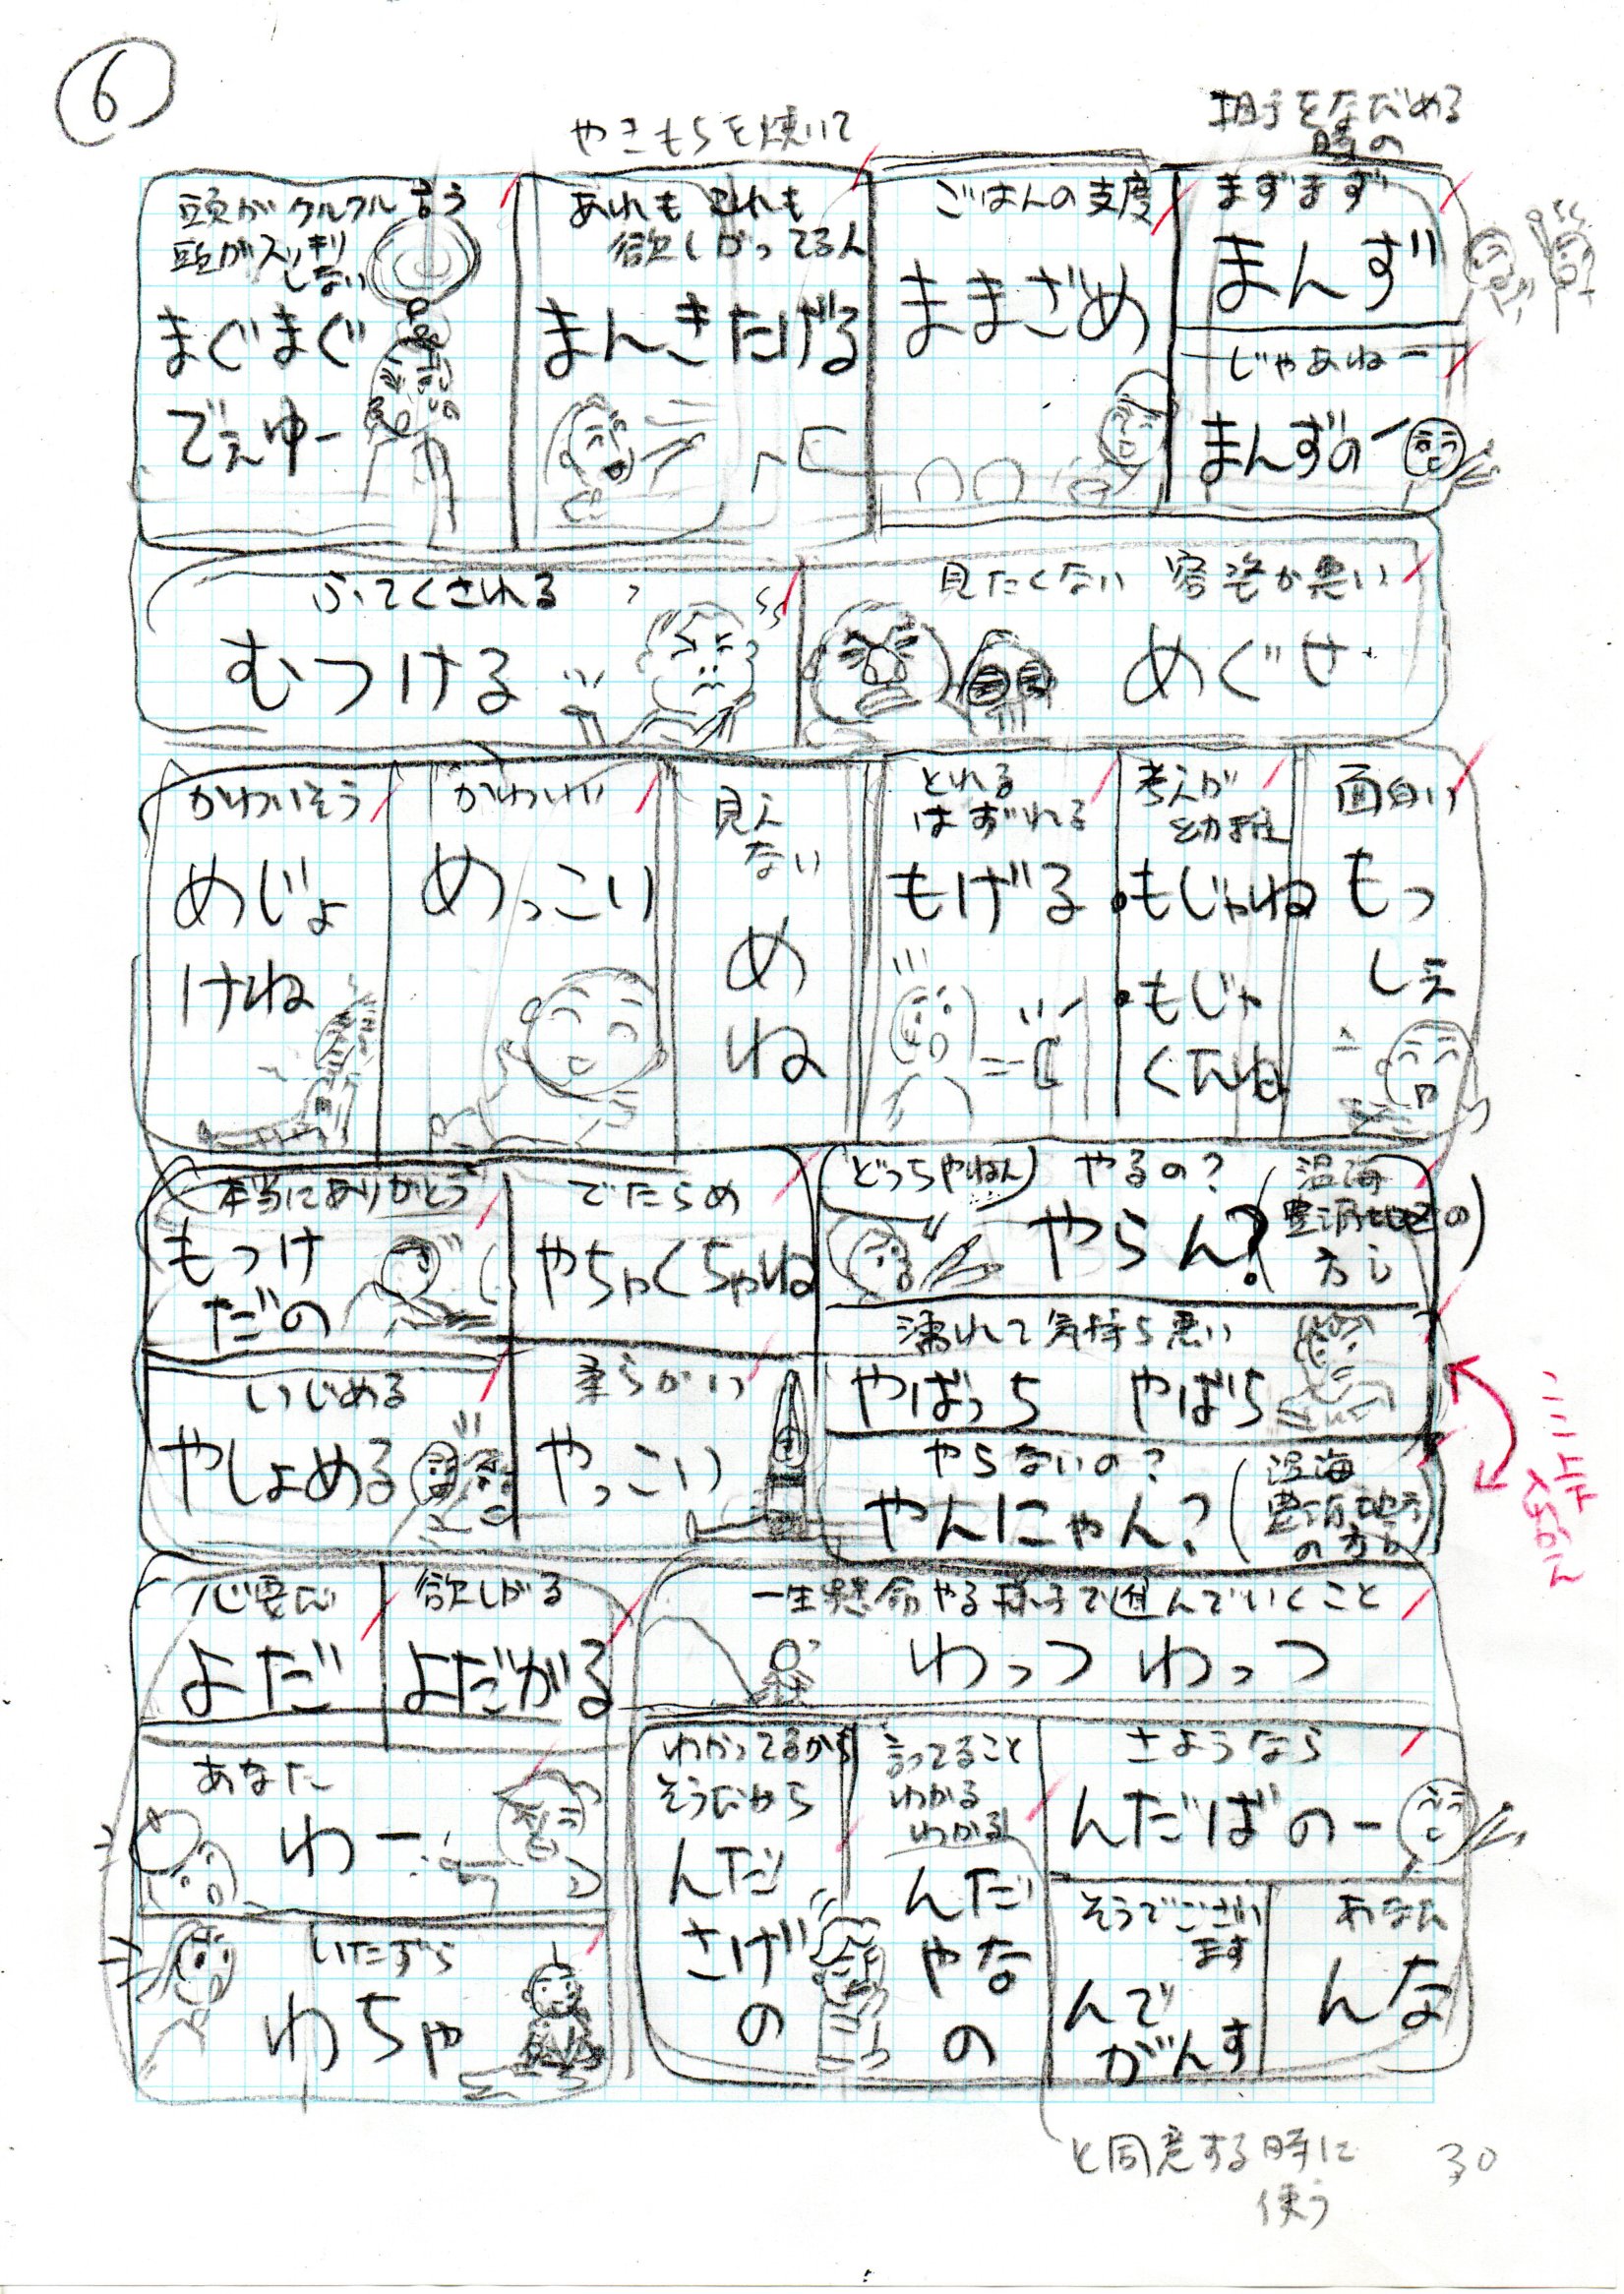 6
相手をなだめる
時の
やきもちを焼いて
頭がクルクル言う
頭がスッキリ
しない
まぐまぐ
でぇゆー
あれも これも
欲しがってる人
まんきたげる
ごはんの支度
ままざめ
まずまず
まんず
じゃあねー
まんずのー
ふてくされる
むつける
見たくない 容姿が悪い
めぐせ
かわいそう
めじょ
けね
かわいい
めっこい
見え
ない
め
ね
とれる
はずれる
もげる
考えが
幼稚
・もじゃね
・もじゃ
くてんね
面白い
もっ
しぇ
本当にありがとう
もっけ
だの
でたらめ
やちゃくちゃね
どっちやねん
やるの?
やらん?
(温海
豊浦地区の)
方し
いじめる
やしょめる
柔らかい
やっこい
濡れて気持ち悪い
やばっち やばち
やらないの?
やんにゃん?
(温海
豊浦地方
の方し)
ここ
上下
入れかえ
必要だ
よだ
欲しがる
よだがる
一生懸命やる様子で進んでいくこと
わっつ わっつ
あなた
わー
いたずら
わちゃ
わかってるから
そうだから
んだ
さげ
の
言ってること
わかる
わかる
んだ
やな
の
さようなら
んだばのー
そうでござい
ます
んで
がんす
あなた
んな
と同意する時に
使う
30